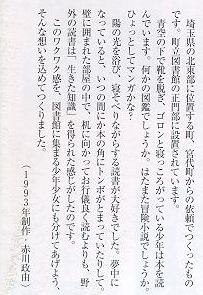 埼玉県の北東部に位置する町、宮代町からの依頼でつくったもの
です。町立図書館の正門部に設置されています。
青空の下で靴を脱ぎ、ゴロンと寝っころがっている少年は本を読
んでいます。何かの図鑑でしょうか。はたまた冒険小説でしょうか。
ひょっとしてマンガかな?
陽の光を浴び、寝そべりながらする読書が大好きでした。夢中に
なっていると、いつの間にか本の角にトンボがとまっていたりして。
壁に囲まれた部屋の中で、机に向かってお行儀良く読むよりも、野
外の読書は「生きた知識」を得られた感じがしたのです。
このワクワク感を、図書館に集まる少年少女にも分けてあげよう、
そんな想いを込めてつくりました。
(1993年制作 赤川政由)